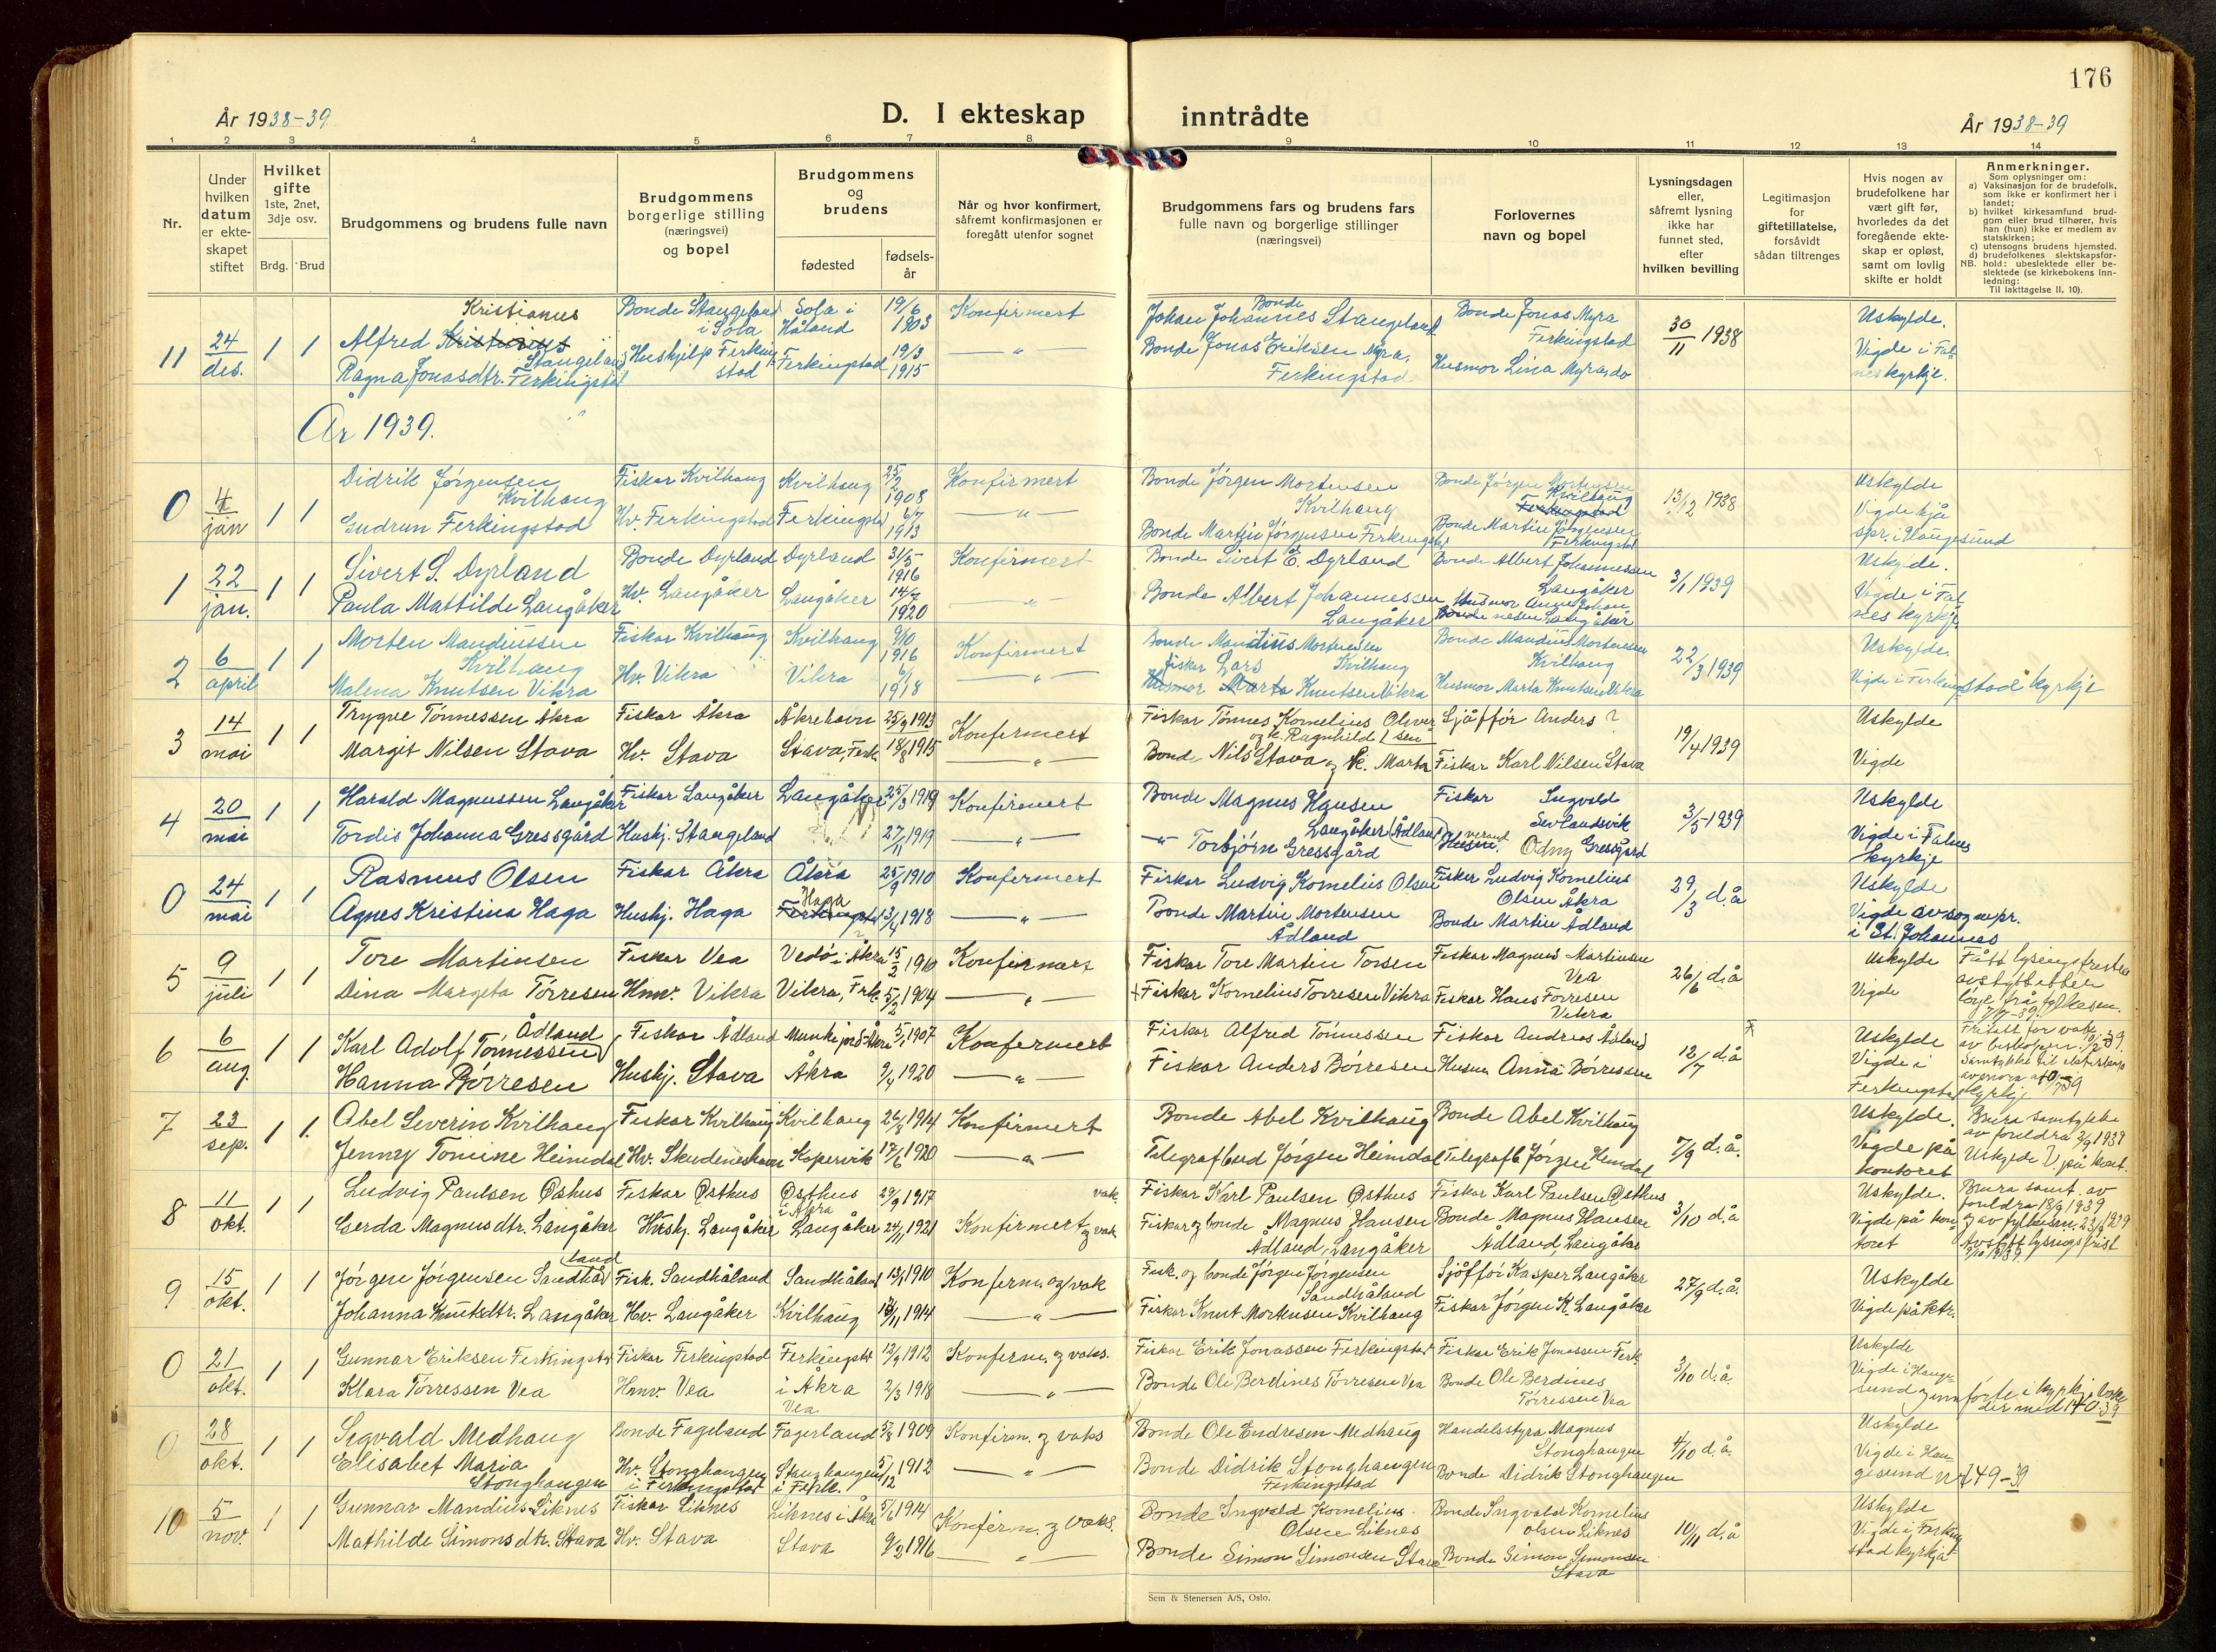 176
År 1938-39
D. I ekteskap inntrådte
År 1938-39
1 2 3 4 5 6 7 8 9 10 11 12 13 14
Nr.
Under
hvilken
datum
er ekte-
skapet
stiftet
Hvilket
gifte
1ste, 2net,
3dje osv.
Brdg. Brud
Brudgommens og brudens fulle navn
Brudgommens
borgerlige stilling
(næringsvei)
og bopel
Brudgommens
og
brudens
fødested
fødsels-
år
Når og hvor konfirmert,
såfremt konfirmasjonen er
foregått utenfor sognet
Brudgommens fars og brudens fars
fulle navn og borgerlige stillinger
(næringsvei)
Forlovernes
navn og bopel
Lysningsdagen
eller,
såfremt lysning
ikke har
funnet sted,
efter
hvilken bevilling
Legitimasjon
for
giftetillatelse,
forsåvidt
sådan tiltrenges
Hvis nogen av
brudefolkene har
vært gift før,
hvorledes da det
foregående ekte-
skap er opløst,
samt om lovlig
skifte er holdt
Anmerkninger.
Som oplysninger om:
a) Vaksinasjon for de brudefolk,
som ikke er konfirmert her i
landet;
b) hvilket kirkesamfund brud-
gom eller brud tilhører, hvis
han (hun) ikke er medlem av
statskirken;
c) utensogns brudens hjemsted.
d) brudefolkenes slektskapsfor-
NB. hold: ubeslektede eller be-
slektede (se kirkebokens inn-
ledning:
Til iakttagelse II, 10).
11 24 des. 1 1
Kristianus
Alfred Kristinius
Stangeland
Ragna Jonasdtr. Ferkingstad
Bonde Stangeland
i Sola
Hushjelp Ferking-
stad
Sola i
Håland
Ferkingstad
19/6 1903
19/3 1915
Konfirmert
— " —
Bonde
Johan Johannes Stangeland
Bonde Jonas Eriksen Myra,
Ferkingstad
Bonde Jonas Myra
Ferkingstad
Husmor Lina Myra, do
30/11 1938
Uskylde.
Vigde i Fal-
neskyrkje.
År 1939.
0 4 jan 1 1
Didrik Jørgensen
Kvilhaug
Gudrun Ferkingstad
Fiskar Kvilhaug
Hv. Ferkingstad
Kvilhaug
Ferkingstad
25/2 1908
6/7 1913
Konfirmert
— " —
Bonde Jørgen Mortensen
Kvilhaug
Bonde Martin Jørgensen Ferkingstad
Bonde Jørgen Mortensen
Kvilhaug
Ferkingstad
Bonde Martin Jørgensen
Ferkingstad
13/12 1938
Uskylde
Vigde hjå
spr. i Haugesund
1 22 jan. 1 1
Sivert S. Dyrland
Paula Mathilde Langåker
Bonde Dyrland
Hv. Langåker
Dyrland
Langåker
31/5 1916
14/7 1920
Konfirmert
— " —
Bonde Sivert E. Dyrland
Bonde Albert Johannessen
Langåker
Bonde Albert Johannessen
Langåker
Husmor Anna Johan
Bonde nesen Langåker
3/1 1939
Uskylde.
Vigde i Fal-
nes kyrkje
2 6 april 1 1
Morten Mandiussen
Kvilhaug
Malena Knutsen Vikra
Fiskar Kvilhaug
Hv. Vikra
Kvilhaug
Vikra
9/10 1916
6/1 1918
Konfirmert
— " —
Bonde Mandius Mortensen
Kvilhaug
fiskar Lars
Husmor Marta Knutsen Vikra
Bonde Mandius Mortensen
Kvilhaug
Husmor Marta Knutsen Vikra
22/3 1939
Uskylde.
Vigde i Ferkingstad kyrkje
3 14 mai 1 1
Trygve Tønnessen Åkra
Margit Nilsen Stava
Fiskar Åkra
Hv. Stava
Åkrehavn
Stava, Ferk.
25/2 1913
18/8 1915
Konfirmert
— " —
Fiskar Tønnes Kornelius Oliver
og k. Ragnhild sen
Bonde Nils Stava og k. Marta
Sjåffør Anders ?
Fiskar Karl Nilsen Stava
19/4 1939
Uskylde
Vigde
4 20 mai 1 1
Harald Magnussen Langåker
Tordis Johanna Gressgård
Fiskar Langåker
Hushj. Stangeland
Langåker
25/3 1919
27/11 1919
Konfirmert
— " —
Bonde Magnus Hansen
Langåker (Ådland)
— " — Torbjørn Gressgård
Fiskar Ingvald
Sevlandsvik
Husm. Odny Gressgård
3/5 1939
Uskylde
Vigde i Falnes
kyrkje
0 24 mai 1 1
Rasmus Olsen
Agnes Kristina Haga
Fiskar Åkra
Hushj. Haga
Åkra
Haga
Ferkingstad
25/9 1910
13/4 1918
Konfirmert
— " —
Fiskar Ludvig Kornelius Olsen
Bonde Martin Mortensen
Ådland
Fisker Ludvig Kornelius
Olsen Åkra
Bonde Martin Ådland
29/3 d.å
Uskylde
Vigde av sognepr.
i St. Johannes
5 9 juli 1 1
Tore Martinsen
Dina Margeta Tørresen
Fiskar Vea
Hmv. Vikra
Vedø i Åkra
Vikra, Frk.
15/2 1910
5/2 1904
Konfirmert
— " —
Fiskar Tore Martin Torsen
+ Fiskar Kornelius Torresen Vikra
Fiskar Magnus Martinsen
Vea
Fiskar Hans Torresen
Vikra
26/6 d.å
Uskylde
Vigde
Fått lysingsfristen
avstytt etter
løyve frå fylkesm.
7/7-39.
6 6 aug. 1 1
Ådland
Karl Adolf Tønnessen
Hanna Børresen
Fiskar Ådland
Hushj. Stava
Munkejord Åkra
Åkra
5/1 1907
9/4 1920
Konfermert
— " —
Fiskar Alfred Tønnessen
Fiskar Anders Børresen
Fiskar Andreas Ådland
Husm. Anna Børressen
12/7 d.å
Uskylde
Vigde i
Ferkingstad kyrkje
Fritatt for vaks.
av biskopen
Samtykke til ekteskap
7 23 sep. 1 1.
Abel Severin Kvilhaug
Jenny Tomine Heimdal
Fiskar Kvilhaug
Hv. Skudeneshavn
Kvilhaug
Kopervik
26/5 1914
17/6 1920
Konfirmert
— " —
Bonde Abel Kvilhaug
Telegrafbud Jørgen Heimdal
Bonde Abel Kvilhaug
Telegrafb. Jørgen Heimdal
7/9 d.å.
Uskylde.
Vigde på
kontoret
Brura samtykke
av foreldra 2/9 1939
8 11 okt. 1 1
Ludvig Paulsen Østhus
Gerda Magnusdtr. Langåker
Fiskar Østhus
Hushj. Langåker
Østhus
i Åkra
Langåker
29/9 1917
24/11 1921
vak.
Konfirmert og vak
Fiskar Karl Paulsen Østhus
Fiskar og bonde Magnus Hansen
Ådland, Langåker
Fiskar Karl Paulsen Østhus
Bonde Magnus Hansen
Ådland, Langåker
3/10 d.å
Uskylde.
Vigde på kon-
toret
Brura samt. av
foreldra 18/9 1939
og av fylkesm. 23/9 1939
Avstytt lysingsfrist
9 15 okt. 1 1
land
Jørgen Jørgensen Sandhå
Johanna Knutsdtr. Langåker
Fisk. Sandhåland
Hv. Langåker
Sandhåland
Kvilhaug
13/1 1910
13/11 1914
Konferm. og vak
— " —
Fisk. og bonde Jørgen Jørgensen
Sandhåland
Fiskar Knut Mortensen Kvilhaug
Sjåffør Kasper Langåker
Fiskar Jørgen K. Langåker
27/9 d.å.
Uskylde
Vigde på ktr.
0 21 okt. 1 1
Gunnar Eriksen Ferkingstad
Klara Tørressen Vea
Fiskar Ferkingstad
Hmv. Vea
Ferkingstad
i Åkra
Vea
12/9 1912
2/3 1918
Konferm. og vaks.
— " —
Fiskar Erik Jonassen Ferkingstad
Bonde Ole Berdines Tørresen Vea
Fiskar Erik Jonassen Ferk.
Bonde Ole Berdines
Tørressen Vea
3/10 d.å.
Uskylde
Vigde i Hauge-
sund og innførte i kyrkjeboka
der med 140-39
0 28 okt. 1 1
Sigvald Medhaug
Elisabet Maria
Stonghaugen
Bonde Fageland
Hv. Stonghaugen
i Ferkingstad
Fagerland
Stanghaugen
i Ferk.
5/8 1909
5/12 1912
Konfirm. og vaks
— " —
Bonde Ole Endresen Medhaug
Bonde Didrik Stonghaugen
Ferkingstad
Handelsstyra Magnus
Stonghaugen
Bonde Didrik Stonghaugen
4/10 d.å.
Uskylde
Vigde i Hau-
gesund nr 149-39
10 5 nov. 1 1
Gunnar Mandius Liknes
Mathilde Simonsdtr. Stava
Fiskar Liknes
Hv. Stava
Liknes i Åkra
Stava
5/6 1914
9/2 1916
Konferm. og vaks.
— " —
Bonde Ingvald Kornelius
Olsen Liknes
Bonde Simon Simonsen Stava
Bonde Ingvald Kornelius
Olsen Liknes
Bonde Simon Simonsen
Stava
10/11 d.å
Uskylde
Vigde i Ferking-
stad kyrkja
Sem & Stenersen A/S, Oslo.